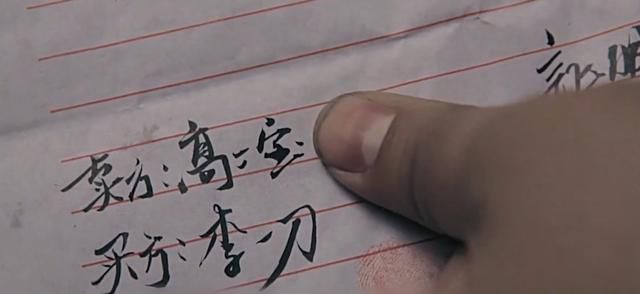 卖方:高二宝
买方:李一刀